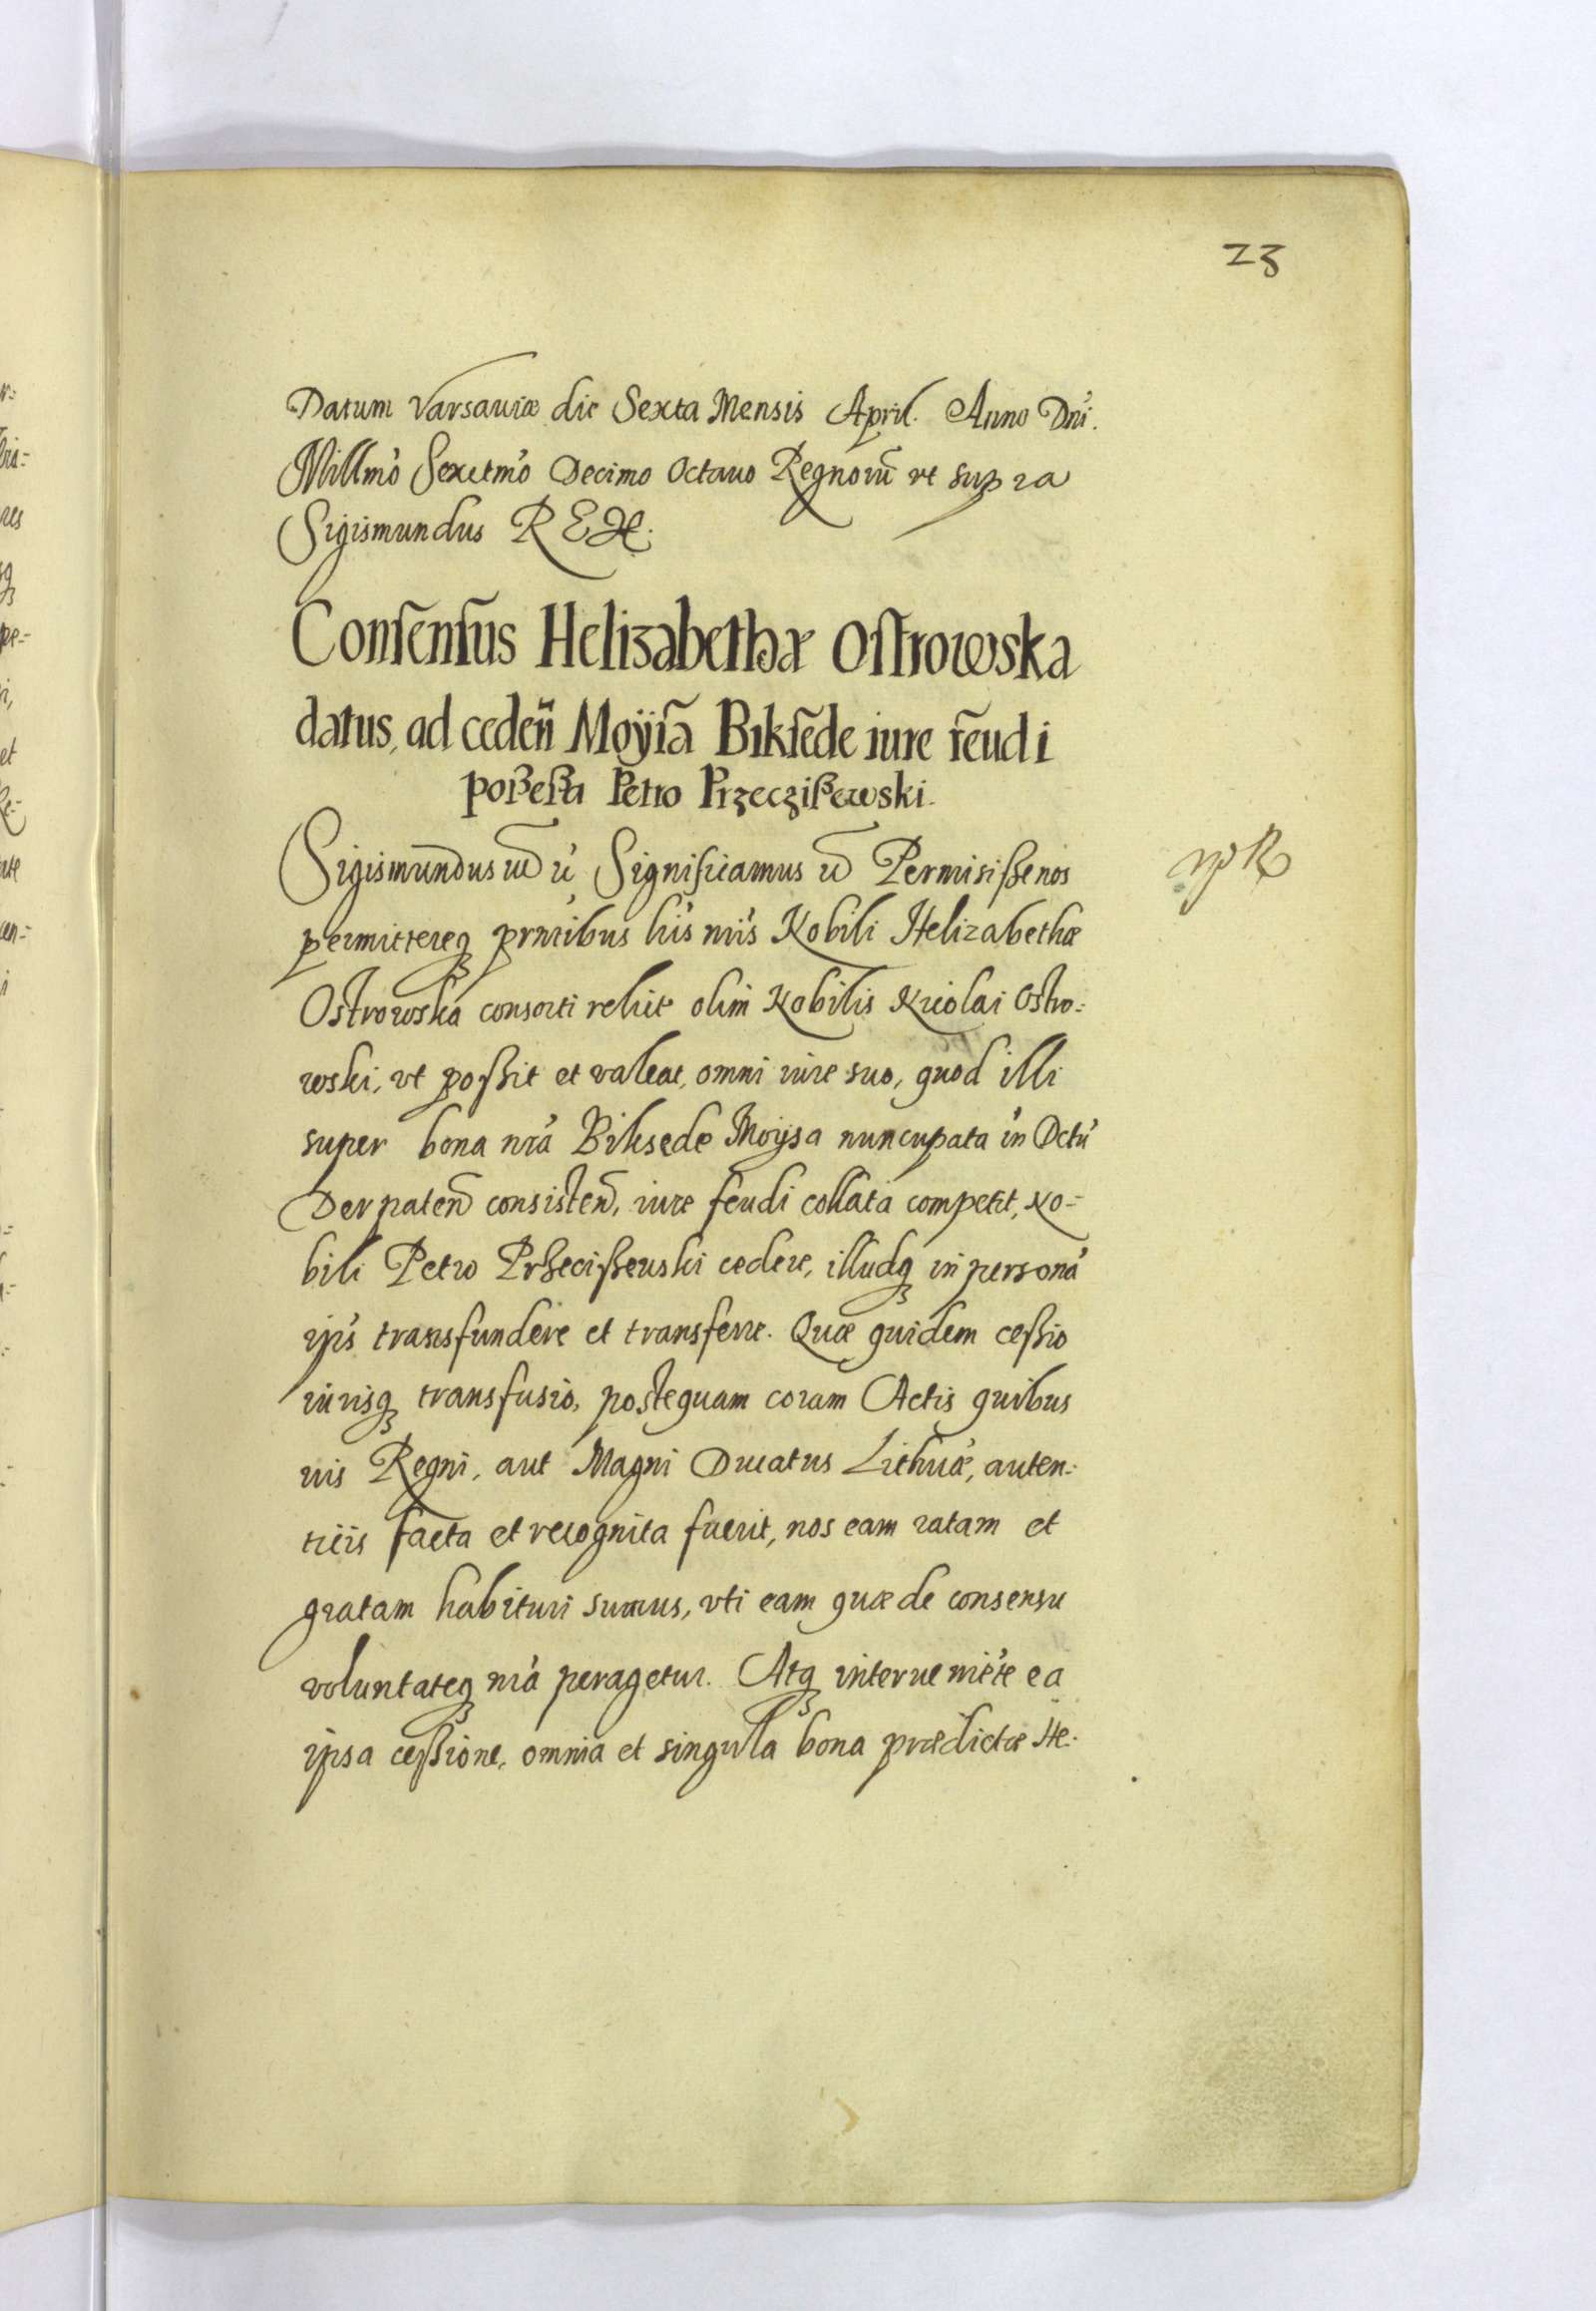 23
Datum Varsaviæ die Sexta Mensis April. Anno Dni.
Millmo Sexctmo Decimo Octauo Regnorũ vt supra
Sigismundus REX.
Consensus Helizabethæ Ostrowska
datus, ad cedeñ Moÿsã Biksede iure feudi
poßessa Petro Przeczißewski.
Sigismundus Significamus Permisißenos
permittereq₃ prntibus lris nris Nobili Helizabethæ
Ostrowska consorti relict olim Nobilis Nicolai Ostro=
wski, vt poßit et valeat, omni iure suo, quod illi
super bona nra Biksede Moysa nuncupata in Dctu
Derpateñ consisteñ, iure feudi collata competit, No=
bili Petro Przecißewski cedere, illudq₃ in persona
ipis transfundere et transferre. Quæ quidem ceßio
iurisq₃ transfusio, postequam coram Actis quibus
uis Regni, aut Magni Ducatus Lithuæ, auten=
ticis facta et recognita fuerit, nos eam ratam et
gratam habituri sumus, vti eam quæ de consensu
voluntateq₃ nra peragetur. Atq₃ interueniete ea
ipsa ceßione, omnia et singula bona prædictæ He=